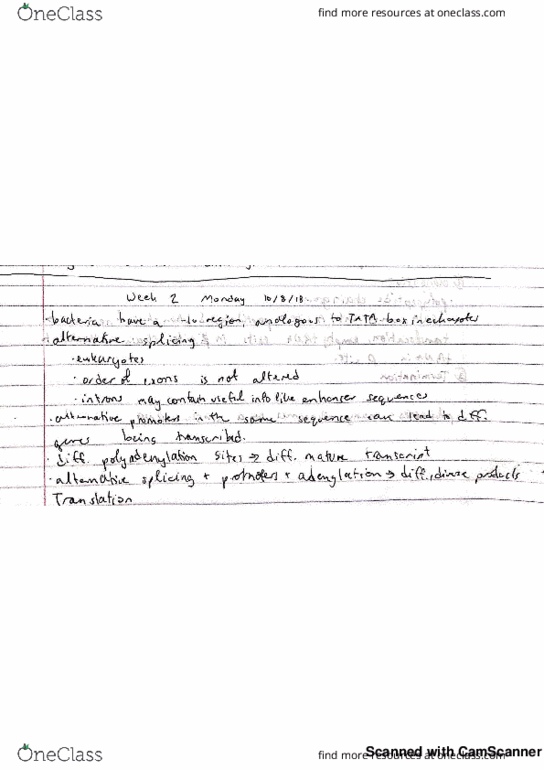 OneClass
find more resources at oneclass.com
Week 2 Monday 10/8/18
-bacteria have a -10 region, analogous to TATA box in eukaryotes
-alternative splicing
· eukaryotes
· order of exons is not altered
· introns may contain useful info like enhancer sequences
· alternative promoters in the same sequence can lead to diff.
genes being transcribed.
· diff. polyadenylation sites → diff. mature transcript
· alternative splicing + promoters + adenylation → diff., diverse products
Translation
OneClass
find more resources at oneclass.com
Scanned with CamScanner